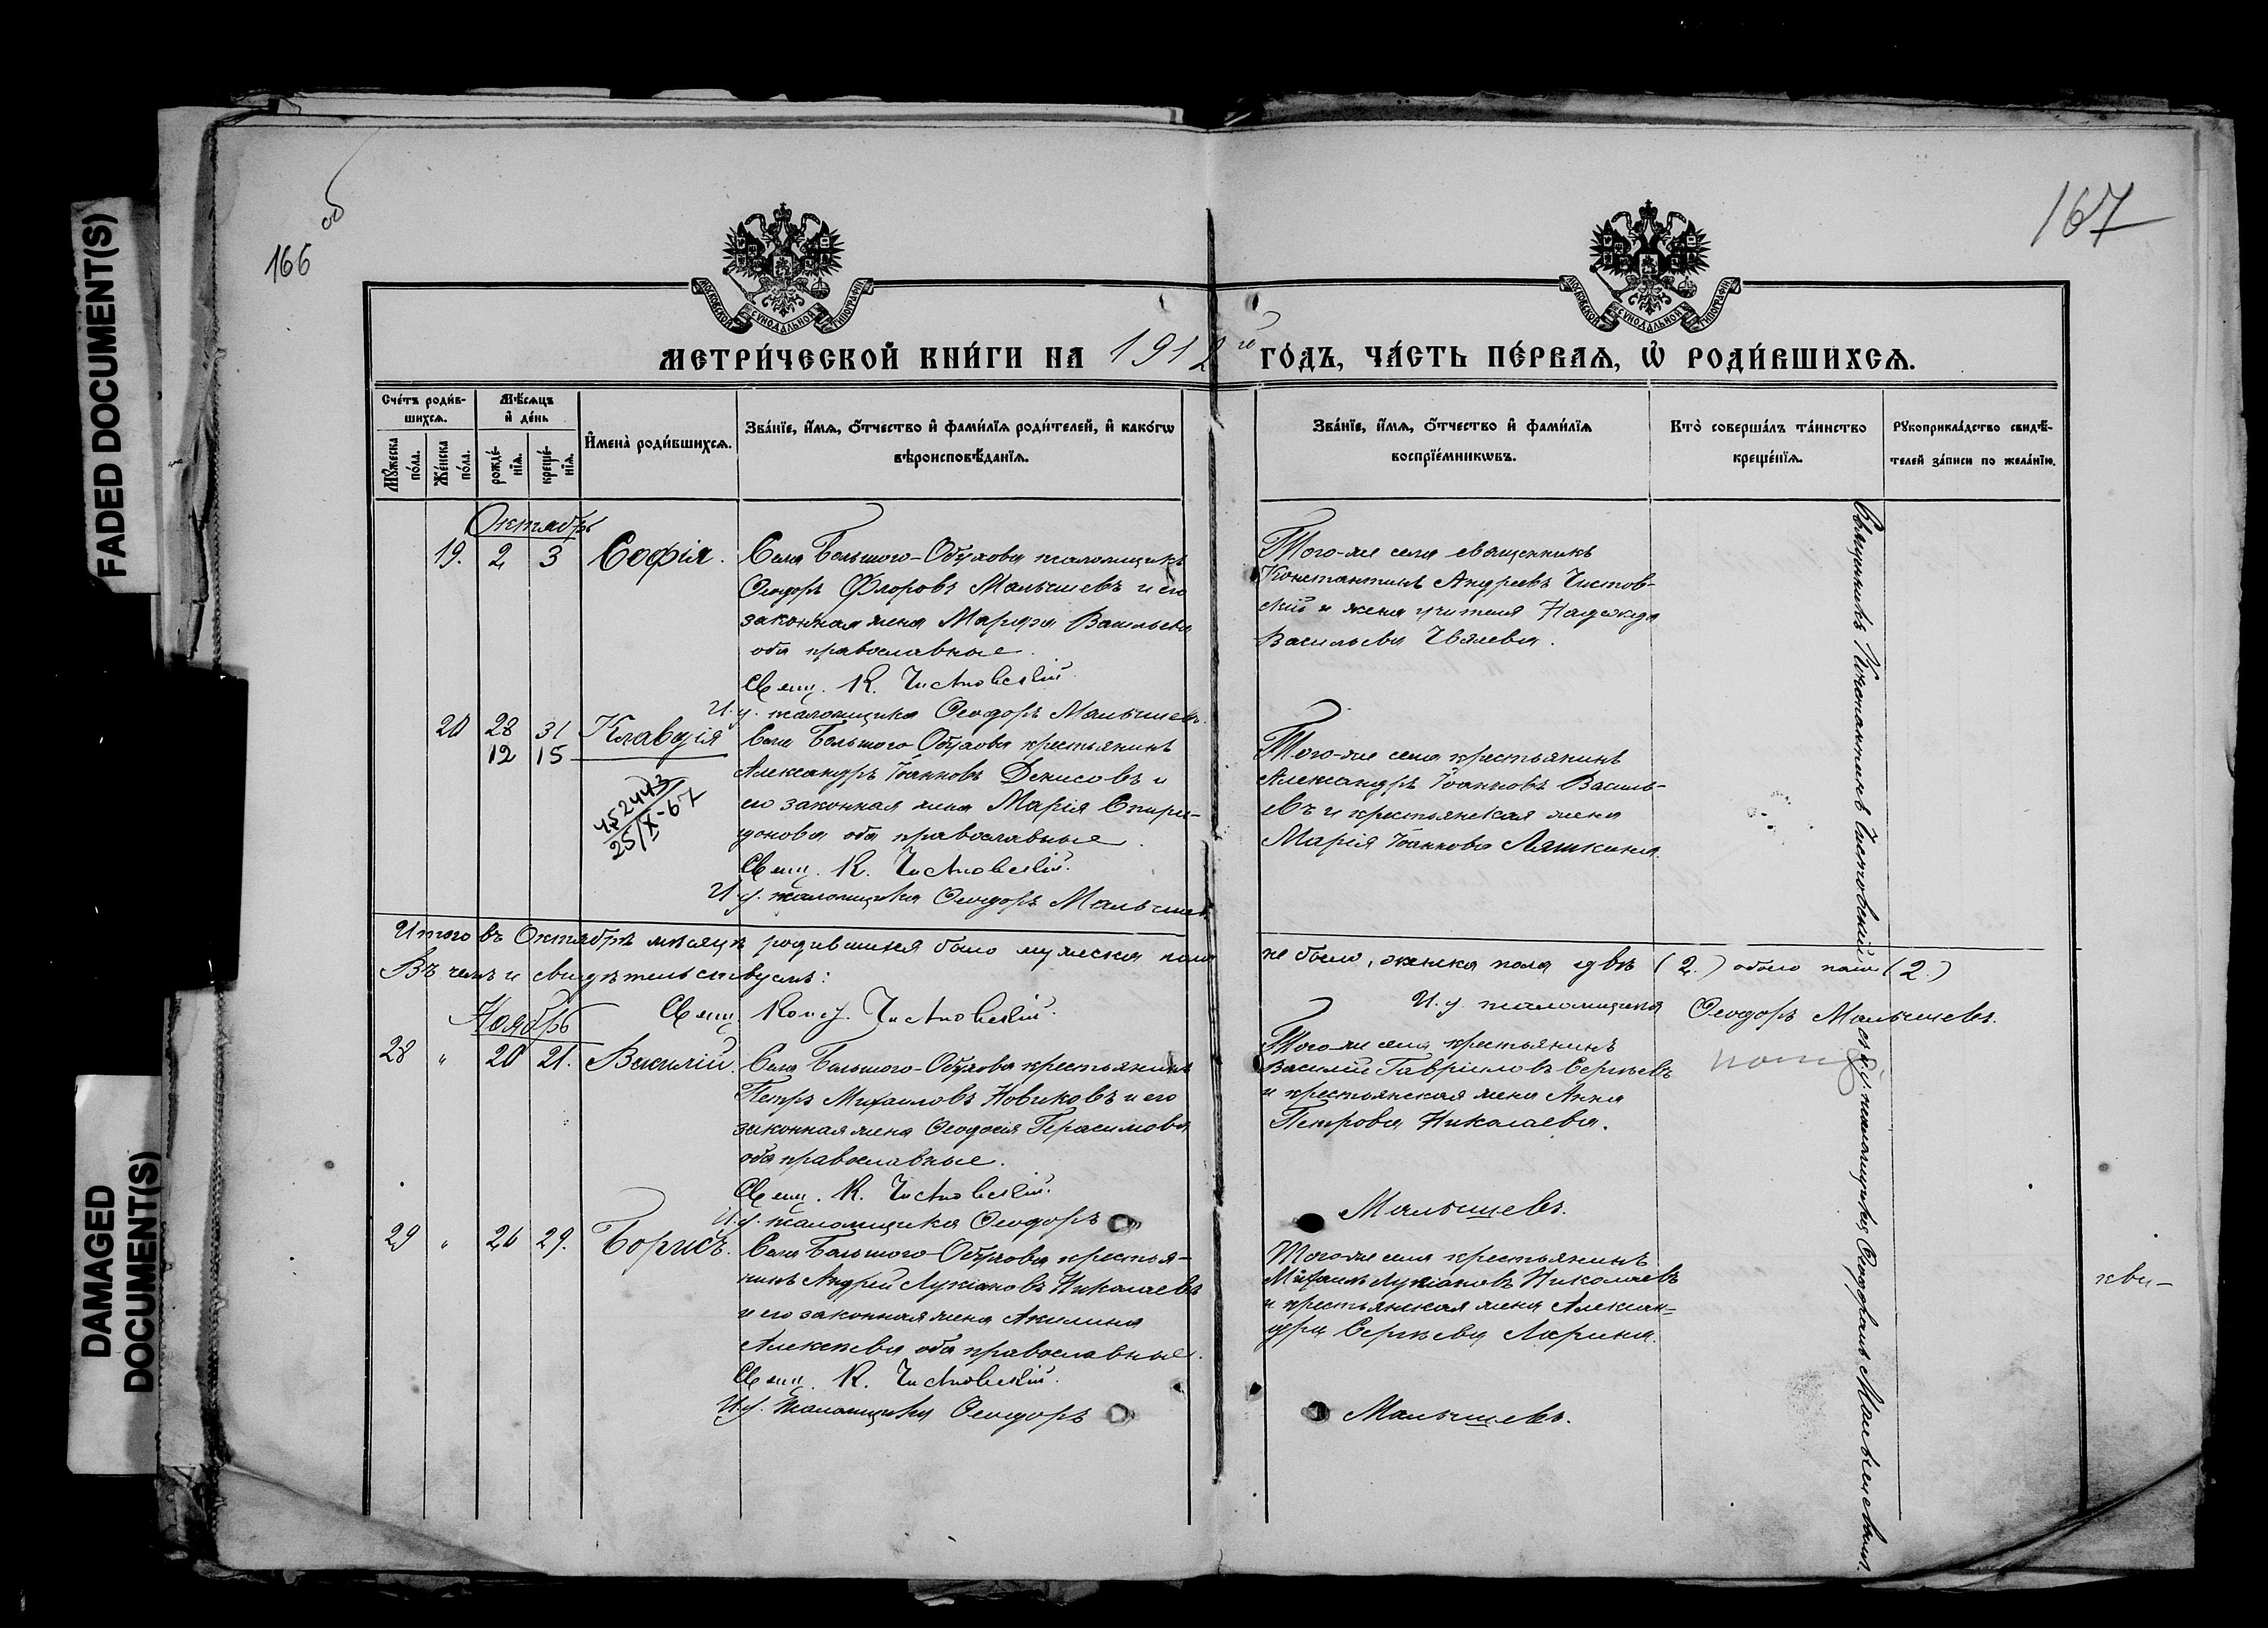 FADED DOCUMENT(S)
DAMAGED
DOCUMENT(S)
166
об
167
МОСКОВСКОЙ СѴНОДАЛЬНОЙ ТИПОГРАФІИ
МОСКОВСКОЙ СѴНОДАЛЬНОЙ ТИПОГРАФІИ
МЕТРИ́ЧЕСКОЙ КНИ́ГИ НА 1912 й ГО́ДЪ, ЧА́СТЬ ПЕ́РВАѦ, Ѡ РОДИ́ВШИХСѦ.
Сче́тъ роди́в-
шихсѧ.
Мѣ́сѧцъ
и҆ де́нь
Мꙋ́жеска
по́ла.
Же́нска
по́ла.
рожде́-
нїѧ.
креще́-
нїѧ.
И҆мена̀ роди́вшихсѧ.
Зва́нїе, и҆́мѧ, ѻ҆́тчество и҆ фами́лїѧ роди́телей, и҆ како́гѡ
вѣроисповѣ́данїѧ.
Зва́нїе, и҆́мѧ, ѻ҆́тчество и҆ фами́лїѧ
воспрїе́мникѡвъ.
Кто̀ соверша́лъ та́инство
креще́нїѧ.
Рꙋкоприкла́дство свидѣ́-
телей за́писи по жела́нїю.
Октябрь
19. 2 3 Софія.
Села Большого-Обухова псаломщикъ
Ѳеодоръ Флоровъ Малышевъ и его
законная жена Марѳа Васильева
оба православные.
Свящ. К. Чистовскій.
И. у. псаломщика Ѳеодоръ Малышевъ.
Того-же села священникъ
Константинъ Андреевъ Чистов-
скій и жена учителя Надежда
Васильева
20 28 31 Клавдія
12 15
452443
25/X-67
Села Большого-Обухова крестьянинъ
Александръ Іоанновъ Денисовъ и
его законная жена Марія Спири-
донова оба православные.
Свящ. К. Чистовскій.
И. у. псаломщика Ѳеодоръ Малышевъ
Того-же села крестьянинъ
Александръ Іоанновъ Василь-
евъ и крестьянская жена
Марія Іоаннова Ляшкина.
Итого въ Октябрѣ мѣсяцѣ родившихся было мужеска пола не было, женска пола двѣ (2.) обоего пола (2.)
Въ чемъ и свидѣтельствуемъ:
Свящ. Конст. Чистовскій.
И. у. псаломщика Ѳеодоръ Малышевъ.
Ноябрь
28 " 20 21. Василій.
Села Большого-Обухова крестьянинъ
Петръ Михаиловъ Новиковъ и его
законная жена Ѳеодосія Герасимова
оба православные.
Свящ. К. Чистовскій.
И. у. псаломщика Ѳеодоръ Малышевъ.
Того-же села крестьянинъ
Василій Гавріиловъ Сергѣевъ
и крестьянская жена Анна
Петрова Николаева.
29 " 26 29. Борисъ.
Села Большого-Обухова крестья-
нинъ Андрей Лукіановъ Николаевъ
и его законная жена Акилина
Алексѣева оба православные.
Свящ. К. Чистовскій.
И. у. псаломщика Ѳеодоръ Малышевъ.
Того-же села крестьянинъ
Михаилъ Лукіановъ Николаевъ
и крестьянская жена Алексан=
дра Сергѣева Ларина.
Священникъ Константинъ Чистовскій съ и. у. псаломщика Ѳеодоромъ Малышевымъ.